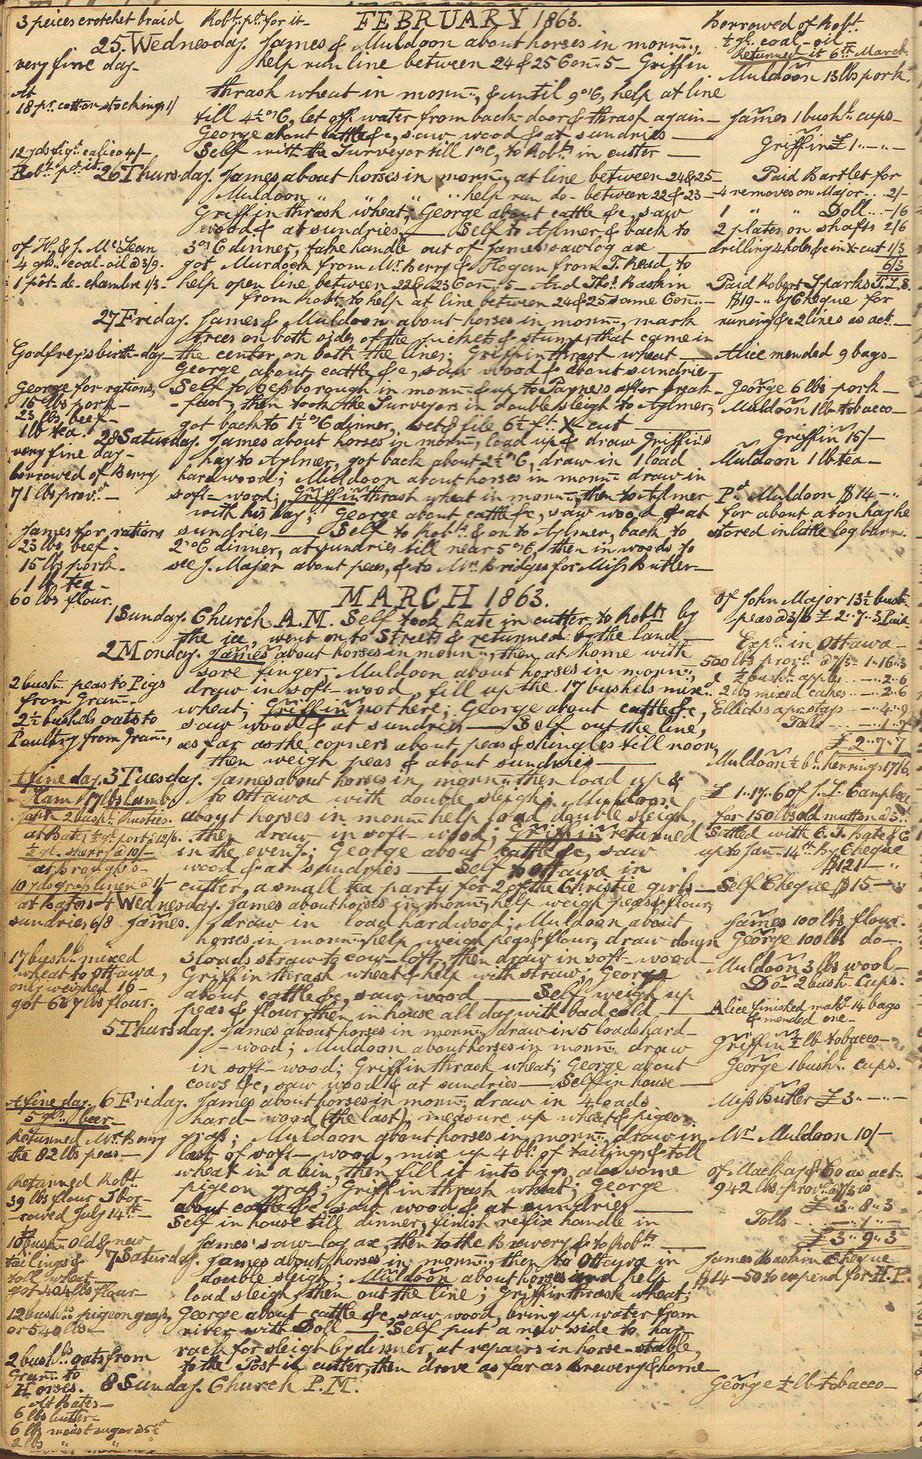 3 peices crotchet braid Robt. pd. for it-
FEBRUARY 1863.
25. Wednesday. James & Muldoon about horses in morng.,
very fine day-
help run line between 24 & 25 Con- 5- Griffin
thrash wheat in morng., & until 9 o'C, help at line
At
18 pr. cotton stockings 1/
till 4½ o'C, let off water from back door & thrash again-
George about cattle &c, saw wood & at sundries-
Self with the Surveyor till 1 o'C, to Robts in cutter-
12 yds calico 4/-
Robt. pd. it-
26 Thursday. James about horses in morng., at line between 24 & 25-
Muldoon " " " help run do- between 22 & 23-
Griffin thrash wheat, George about cattle &c, saw
wood & at sundries, Self to Aylmer, & back to
3 o'C dinner, take handle out of James' saw log ax
of H. & J. McLean
4 gls. coal-oil @ 3/9-
1 pot. de. chambre 1/3-
got Murdoch from Mr. Berry & Hogan from J. Head to
help open line between 22 & 23 Con- 5- And Thos. Baskin
from Robts to help at line between 24 & 25 same Con-
27 Friday. James & Muldoon about horses in morng., mark
trees on both sides of the picket & stumps that came in
Godfrey's birth-day
the center, on both the lines; Griffin thrash wheat
George about cattle &c, saw wood & about sundries-
George for rations,
15 lbs pork-
23 lbs beef-
1 lb tea-
Self to Gessborough in morng. & up to Payne's after break
-fast, then took the Surveyors in double sleigh to Aylmer,
got back to 1½ o'C dinner, set & file 6½ ft. X cut
28 Saturday. James about horses in morng., load up & draw Griffin's
very fine day-
hay to Aylmer, got back about 2½ o'C, draw in 1 load
borrowed of Berry
71 lbs provr.-
hard wood; Muldoon about horses in morng. draw in
soft-wood; Griffin thrash wheat in morng., then to Aylmer
with his hay; George about cattle &c, saw wood & at
James for rations
23 lbs beef,
15 lbs pork.
1 lb tea-
60 lbs flour.
sundries- Self to Robts & on to Aylmer, back to
2 o'C dinner, at sundries till near 5 o'C, then in woods to
see J. Major about peas, & to Mr. Bridges for Miss Butler-
borrowed of Robt.
½ gl. coal-oil
Returned it 6th March
Muldoon 13 lbs pork
James 1 bushl. cups-
Griffin £1-"-"-
Paid Bartlet for
4 removes on Major- 2/-
1 " " Doll- -/6
2 plates on shafts 2/6
drilling 4 holes in X-cut 1/3
6/3
Paid Robert Sparks P.L.S.
$19-" by Cheque for
running &c 2 lines as act-
Alice mended 9 bags-
George 6 lbs pork-
Muldoon 1 lb tobacco-
Griffin 15/-
Muldoon 1 lb tea-
Pd. Muldoon $14-"-
for about a ton hay he
stored in little log barn-
MARCH 1863.
1 Sunday. Church A.M. Self took Kate in cutter, to Robts by
the ice, went on to Streets & returned by the land-
2 Monday. James about horses in morng., then at home with
sore finger; Muldoon about horses in morng.,
2 bush. peas to Pigs
from Gran-
2½ bushls oats to
Poultry from Gran-,
draw in soft-wood, fill up the 17 bushels mixd.
wheat, Griffin not here; George about cattle &c,
saw wood & at sundries- Self out the line,
as far as the corners about peas & shingles till noon,
then weigh peas & about sundries-
of John Major 13½ bush.
peas @ 3/6 £2-7-3 Paid
Exps. in Ottawa-
500 lbs provr. @ 7/3- 1-16-3
½ bush. apples- -2-6
2 lbs mixed cakes- -2-6
Tolls -1-
£2-7-7
Muldoon ½ bl. herrings 17/6
a fine day. 3 Tuesday. James about horses in morng. then load up &
to Ottawa with double sleigh; Muldoon
about horses in morng. help load double sleigh,
then draw in soft-wood; Griffin returned
in the eveng; George about cattle &c, saw
wood & at sundries- Self to Ottawa in
cutter, a small tea party for 2 of the Christie girls-
½ gl. sherry @ 10/-
10 yds gray linen @ 1/
£1-17-6 of J.L. Campbell
for 150 lbs old mutton @ 3
Settled with C.T. Bate & Co
up to Jan- 14th by Cheque
$121-"
Self Cheque $15-"
4 Wednesday. James about horses in morng., help weigh peas & flour,
sundries 6/8
James. draw in load hardwood; Muldoon about
horses in morng. help weigh peas & flour, draw down
17 bushls. mixed
wheat to Ottawa,
only weighed 16-
got 667 lbs flour.
3 loads straw to cow-loft, then draw in soft-wood-
Griffin thrash wheat & help with straw; George
about cattle &c, saw wood- Self weigh up
peas & flour, then in house all day with bad cold-
James 100 lbs flour-
George 100 lbs do-
Muldoon 3 lbs wool-
Do- 2 bush- Cups.
Alice finished makg. 14 bags
& mended one-
5 Thursday. James about horses in morng. draw in 5 loads hard-
-wood; Muldoon about horses in morng. draw
in soft-wood; Griffin thrash wheat; George about
cows &c, saw wood & at sundries- Self in house-
Griffin ½ lb tobacco-
George 1 bushl. cups.
a fine day. 6 Friday. James about horses in morng. draw in 4 loads
5 gls. beer-
Returned Mr. Berry
the 82 lbs peas-
hard-wood (the last), measure up wheat & pigeon
grap; Muldoon about horses in morng., draw in
last of soft-wood, mix up 4 bl. of tailings & toll
wheat in a bin, then fill it into bags, also some
Returned Robt.
39 lbs flour I bor-
-rowed July 14th-
pigeon grap, Griffin thrash wheat; George
about cattle &c, saw wood & at sundries-
Self in house till dinner, finish refix handle in
James' saw-log ax, then to the Brewery & to Robts-
Miss Butler £3-"-"
Mr. Muldoon 10/-
of Mackay & Co as act-
942 lbs provr. @ 7/3 is
£3-8-3
Tolls- -1-
£3-9-3
10 bush- Old & new
tailings &
toll wheat-
got 404 lbs flour-
7 Saturday. James about horses in morng. then to Ottawa in
double sleigh; Muldoon about horses and help
load sleigh, then out the line; Griffin thrash wheat;
12 bushls. pigeon grap,
or 540 lbs-
George about cattle &c, saw wood, bring up water from
river with Doll- Self put a new side to hay
2 bushls oats from
Gran- to
Horses.
rack for sleigh by dinner, at repairs in horse-stable,
to the Post in cutter, then drove as far as Brewery & home-
James Baskin Cheque
$14-50 to expend for H.P.
8 Sunday. Church P.M.
George ½ lb tobacco-
At Bates-
6 lbs butter-
6 lbs moist sugar @
2 lbs